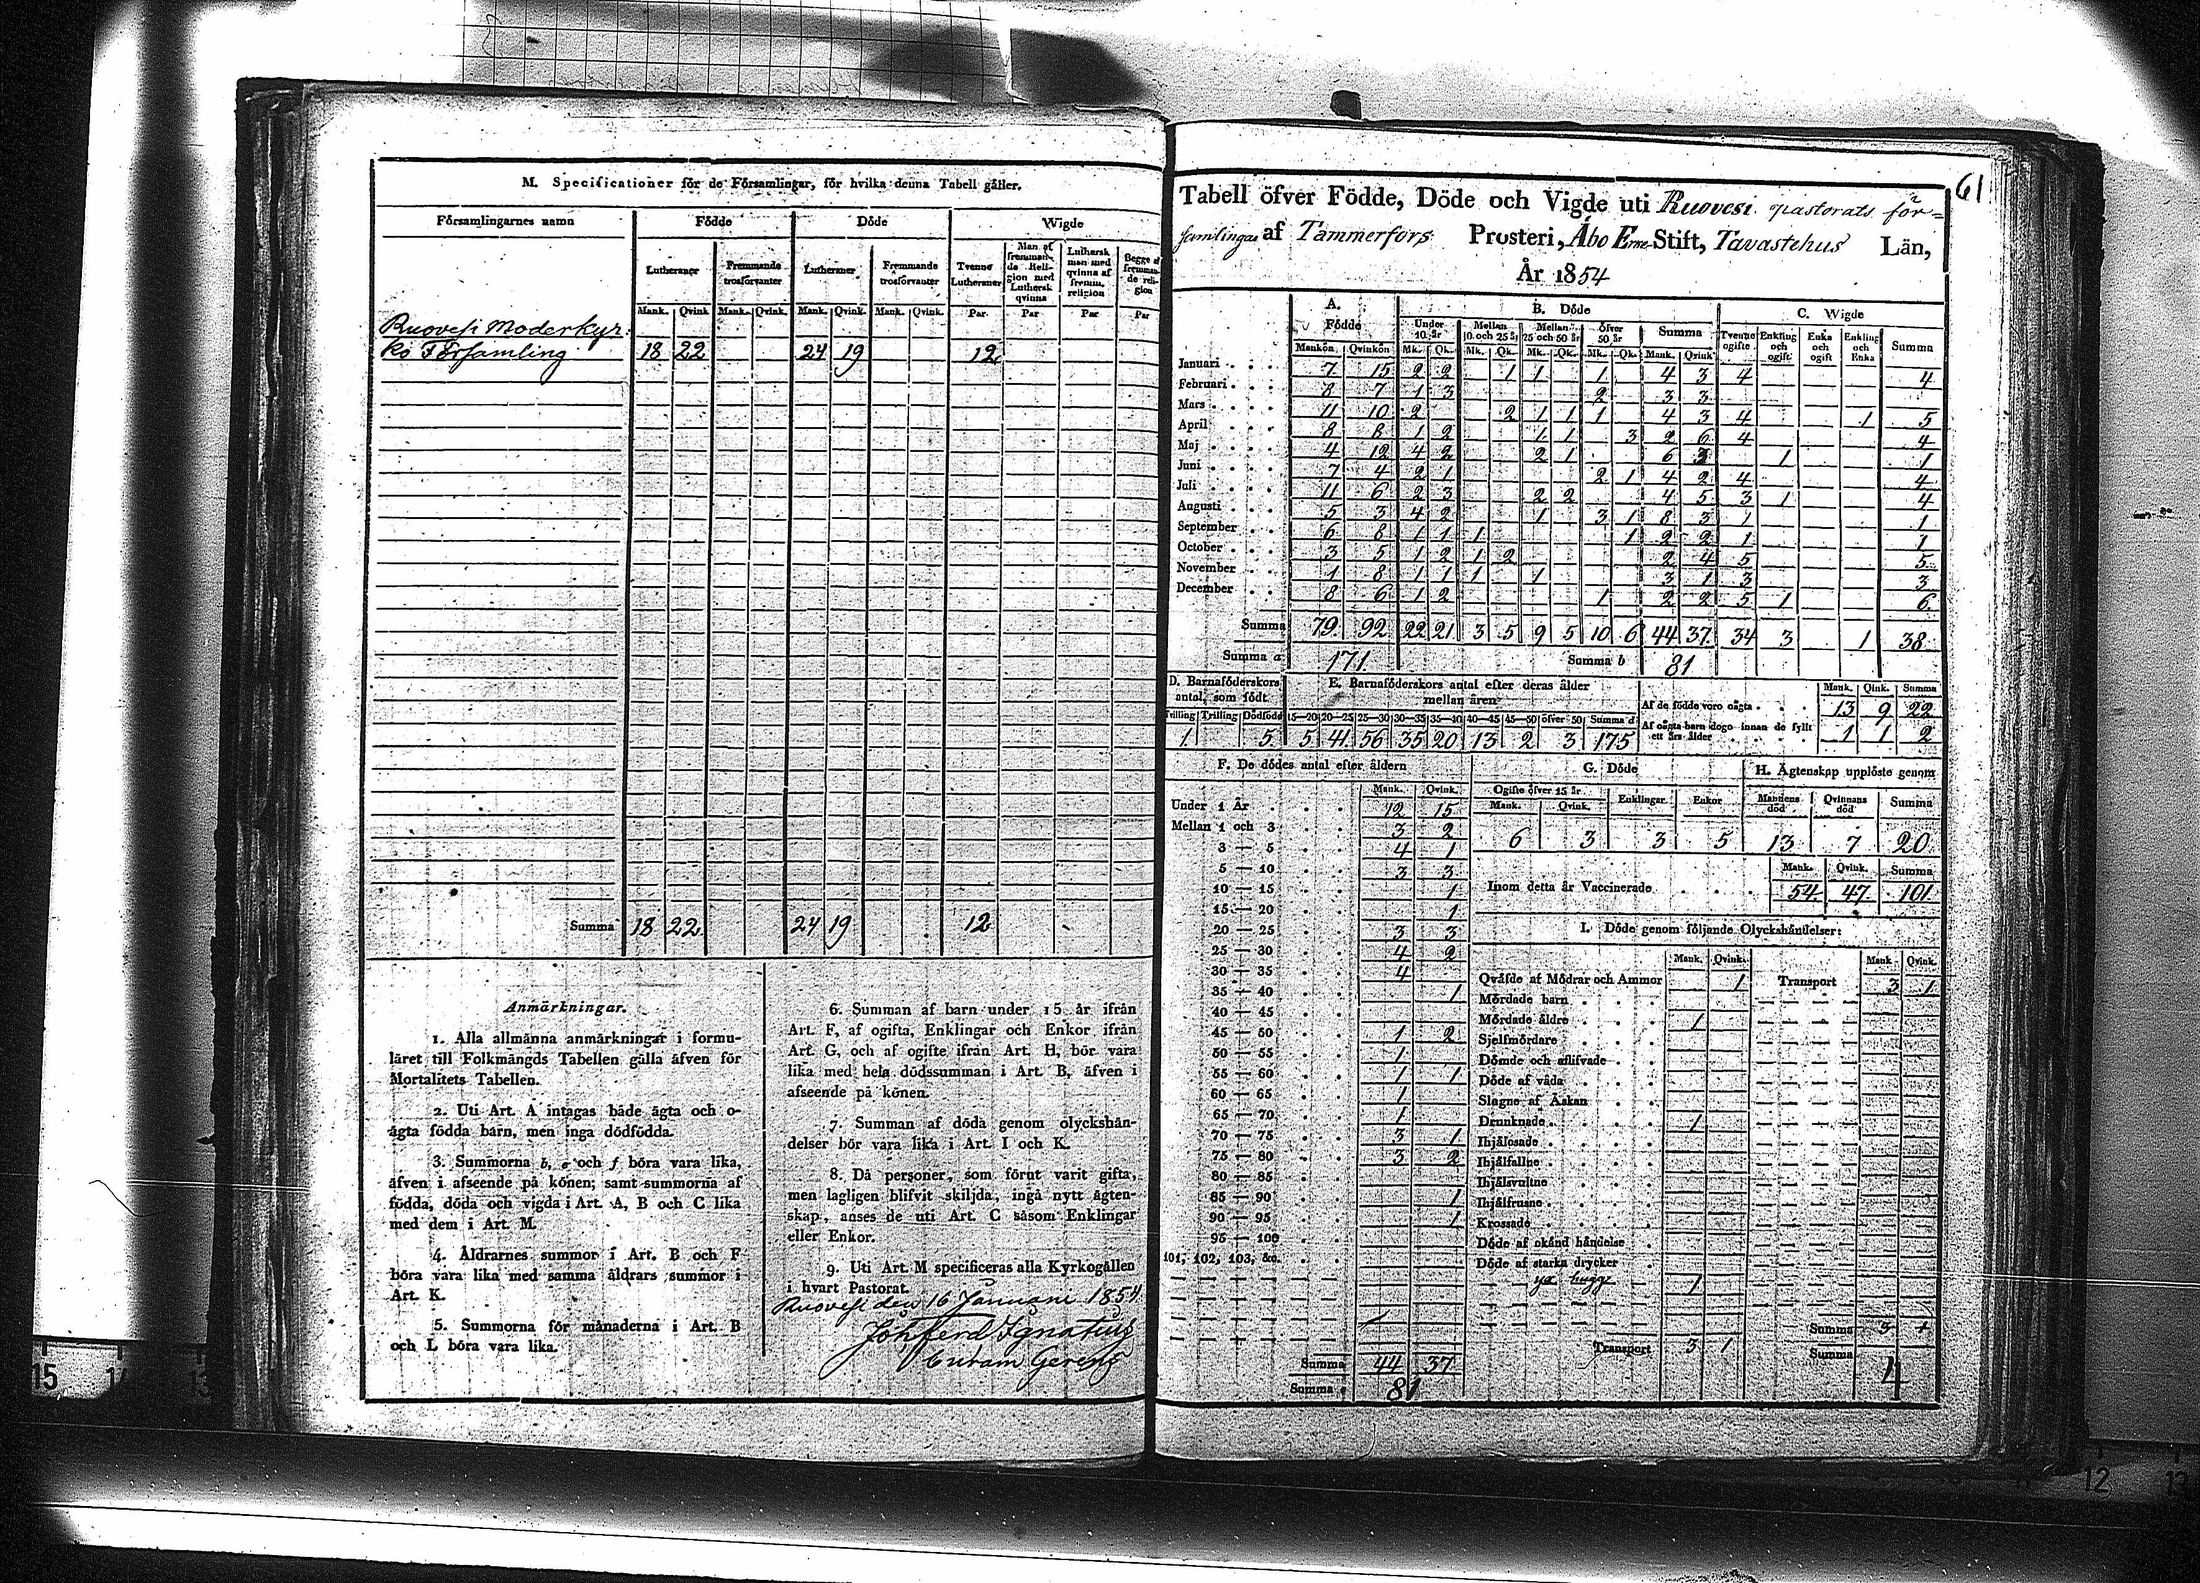 M. Specificationer för de Församlingar, för hvilka denna Tabell gäller.
Församlingarnes namn Födde Döde Wigde
Lutheraner Fremmande trosförvanter Lutheraner Fremmande trosförvanter Tvenne Lutheraner Man af fremmande Religion med Luthersk qvinna Luthersk man med qvinna af fremm. religion Begge af fremmande religion
Mank. Qvink Mank. Qvink. Mank. Qvink. Mank. Qvink. Par Par Par Par
Ruovesi Moderkyr-
ko Församling 18 22 24 19 12
Summa 18 22 24 19 12
Anmärkningar.
1. Alla allmänna anmärkningar i formu-
läret till Folkmängds Tabellen gälla äfven för
Mortalitets Tabellen.
2. Uti Art. A intagas både ägta och o-
ägta födda barn, men inga dödfödda.
3. Summorna b, e och f böra vara lika,
äfven i afseende på könen; samt summorna af
födda, döda och vigda i Art. A, B och C lika
med dem i Art. M.
4. Åldrarnes summor i Art. B och F
böra vara lika med samma åldrars summor i
Art. K.
5. Summorna för månaderna i Art. B
och L böra vara lika.
6. Summan af barn under 15 år ifrån
Art. F, af ogifta, Enklingar och Enkor ifrån
Art. G, och af ogifte ifrån Art. H, bör vara
lika med hela dödssumman i Art. B, äfven i
afseende på könen.
7. Summan af döda genom olyckshän-
delser bör vara lika i Art. I och K.
8. Då personer, som förut varit gifta,
men lagligen blifvit skiljda, ingå nytt ägten-
skap, anses de uti Art. C såsom Enklingar
eller Enkor.
9. Uti Art. M specificeras alla Kyrkogällen
i hvart Pastorat.
Ruovesi den 16 Januari 1854
Joh Ferd Ignatius
Curam Gerens
61
Tabell öfver Födde, Döde och Vigde uti Ruovesi pastorats för-
samlingar af Tammerfors Prosteri, Åbo Erke Stift, Tavastehus Län,
År 1854
A. Födde B. Döde C. Wigde
Under 10 år Mellan 10 och 25 år Mellan 25 och 50 år öfver 50 år Summa Tvenne ogifte Enkling och ogift Enka och ogift Enkling och Enka Summa
Mankön Qvinkön Mk. Qk. Mk. Qk. Mk. Qk. Mk. Qk. Mank. Qvink
Januari 7 15 2 2 1 1 1 4 3 4 4
Februari 8 7 1 3 2 3 3
Mars 11 10 2 2 1 1 1 4 3 4 1 5
April 8 8 1 2 1 1 3 2 6 4 4
Maj 4 12 4 2 2 1 6 3 1 1
Juni 7 4 2 1 2 1 4 2 4 4
Juli 11 6 2 3 2 2 4 5 3 1 4
Augusti 5 3 4 2 1 3 1 8 3 1 1
September 6 8 1 1 1 1 2 2 1 1
October 3 5 1 2 1 2 2 4 5 5
November 1 8 1 1 1 1 3 1 3 3
December 8 6 1 2 1 2 2 5 1 6
Summa 79 92 22 21 3 5 9 5 10 6 44 37 34 3 1 38
Summa a 171 Summa b 81
D. Barnaföderskors antal, som födt E. Barnaföderskors antal efter deras ålder mellan åren Mank. Qink. Summa
Tvilling Trilling Dödfödt 15—20 20—25 25—30 30—35 35—40 40—45 45—50 öfver 50 Summa d
1 5 5 41 56 35 20 13 2 3 175
Af de födde voro oägta 13 9 22
Af oägta barn dogo innan de fyllt ett års ålder 1 1 2
F. De dödes antal efter åldern
Mank. Qvink.
Under 1 År 12 15
Mellan 1 och 3 3 2
3 — 5 4 1
5 — 10 3 3
10 — 15 1
15 — 20 1
20 — 25 3 3
25 — 30 4 2
30 — 35 4
35 — 40 1
40 — 45
45 — 50 1 2
50 — 55 1
55 — 60 1 1
60 — 65 1
65 — 70 1
70 — 75 3 1
75 — 80 3 2
80 — 85
85 — 90 1
90 — 95 1
95 — 100
101, 102, 103, &c.
Summa 44 37
Summa e 81
G. Döde H. Ägtenskap upplöste genom
Ogifte öfver 15 år Enklingar Enkor Mannens död Qvinnans död Summa
Mank. Qvink.
6 3 3 5 13 7 20
Mank. Qvink. Summa
Inom detta år Vaccinerade 54 47 101
I. Döde genom följande Olyckshändelser:
Mank. Qvink. Mank Qvink.
Qväfde af Mödrar och Ammor 1 Transport 3 1
Mördade barn
Mördade äldre 1
Sjelfmördare
Dömde och aflifvade
Döde af våda
Slagne af Åskan
Drunknade 1
Ihjälosade
Ihjälfallne
Ihjälsvultne
Ihjälfrusne
Krossade
Döde af okänd händelse
Döde af starka drycker
yx hugg 1
Transport 3 1
Summa 3 1
Summa 4